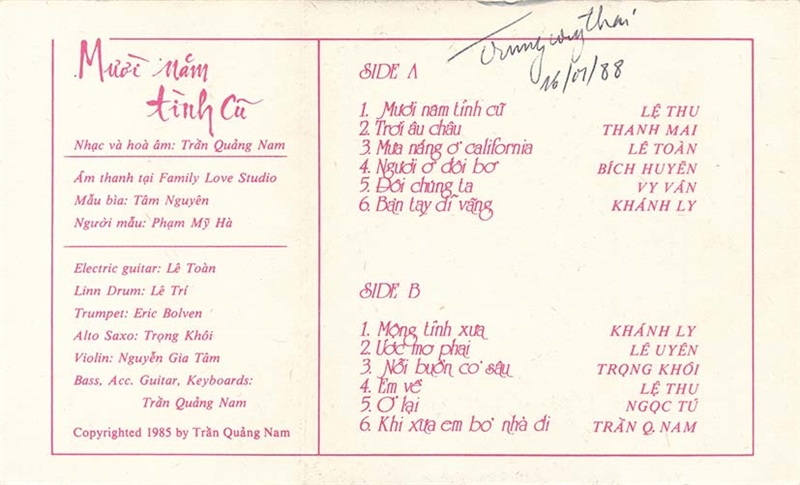 Mười năm
tình cũ
Nhạc và hoà âm: Trần Quảng Nam
Âm thanh tại Family Love Studio
Mẫu bìa: Tâm Nguyên
Người mẫu: Phạm Mỹ Hà
Electric guitar: Lê Toàn
Linn Drum: Lê Trí
Trumpet: Eric Bolven
Alto Saxo: Trọng Khôi
Violin: Nguyễn Gia Tâm
Bass, Acc. Guitar, Keyboards:
Trần Quảng Nam
Copyrighted 1985 by Trần Quảng Nam
16/01/88
SIDE A
1. Mười năm tình cũ LỆ THU
2. Trời âu châu THANH MAI
3. Mưa nắng ở california LÊ TOÀN
4. Người ở đôi bờ BÍCH HUYỀN
5. Đôi chúng ta VY VÂN
6. Bàn tay dĩ vãng KHÁNH LY
SIDE B
1. Mộng tình xưa KHÁNH LY
2. Ước mơ phai LÊ UYÊN
3. Nỗi buồn cỏ sâu TRỌNG KHÔI
4. Em về LỆ THU
5. Ở lại NGỌC TÚ
6. Khi xưa em bỏ nhà đi TRẦN Q. NAM